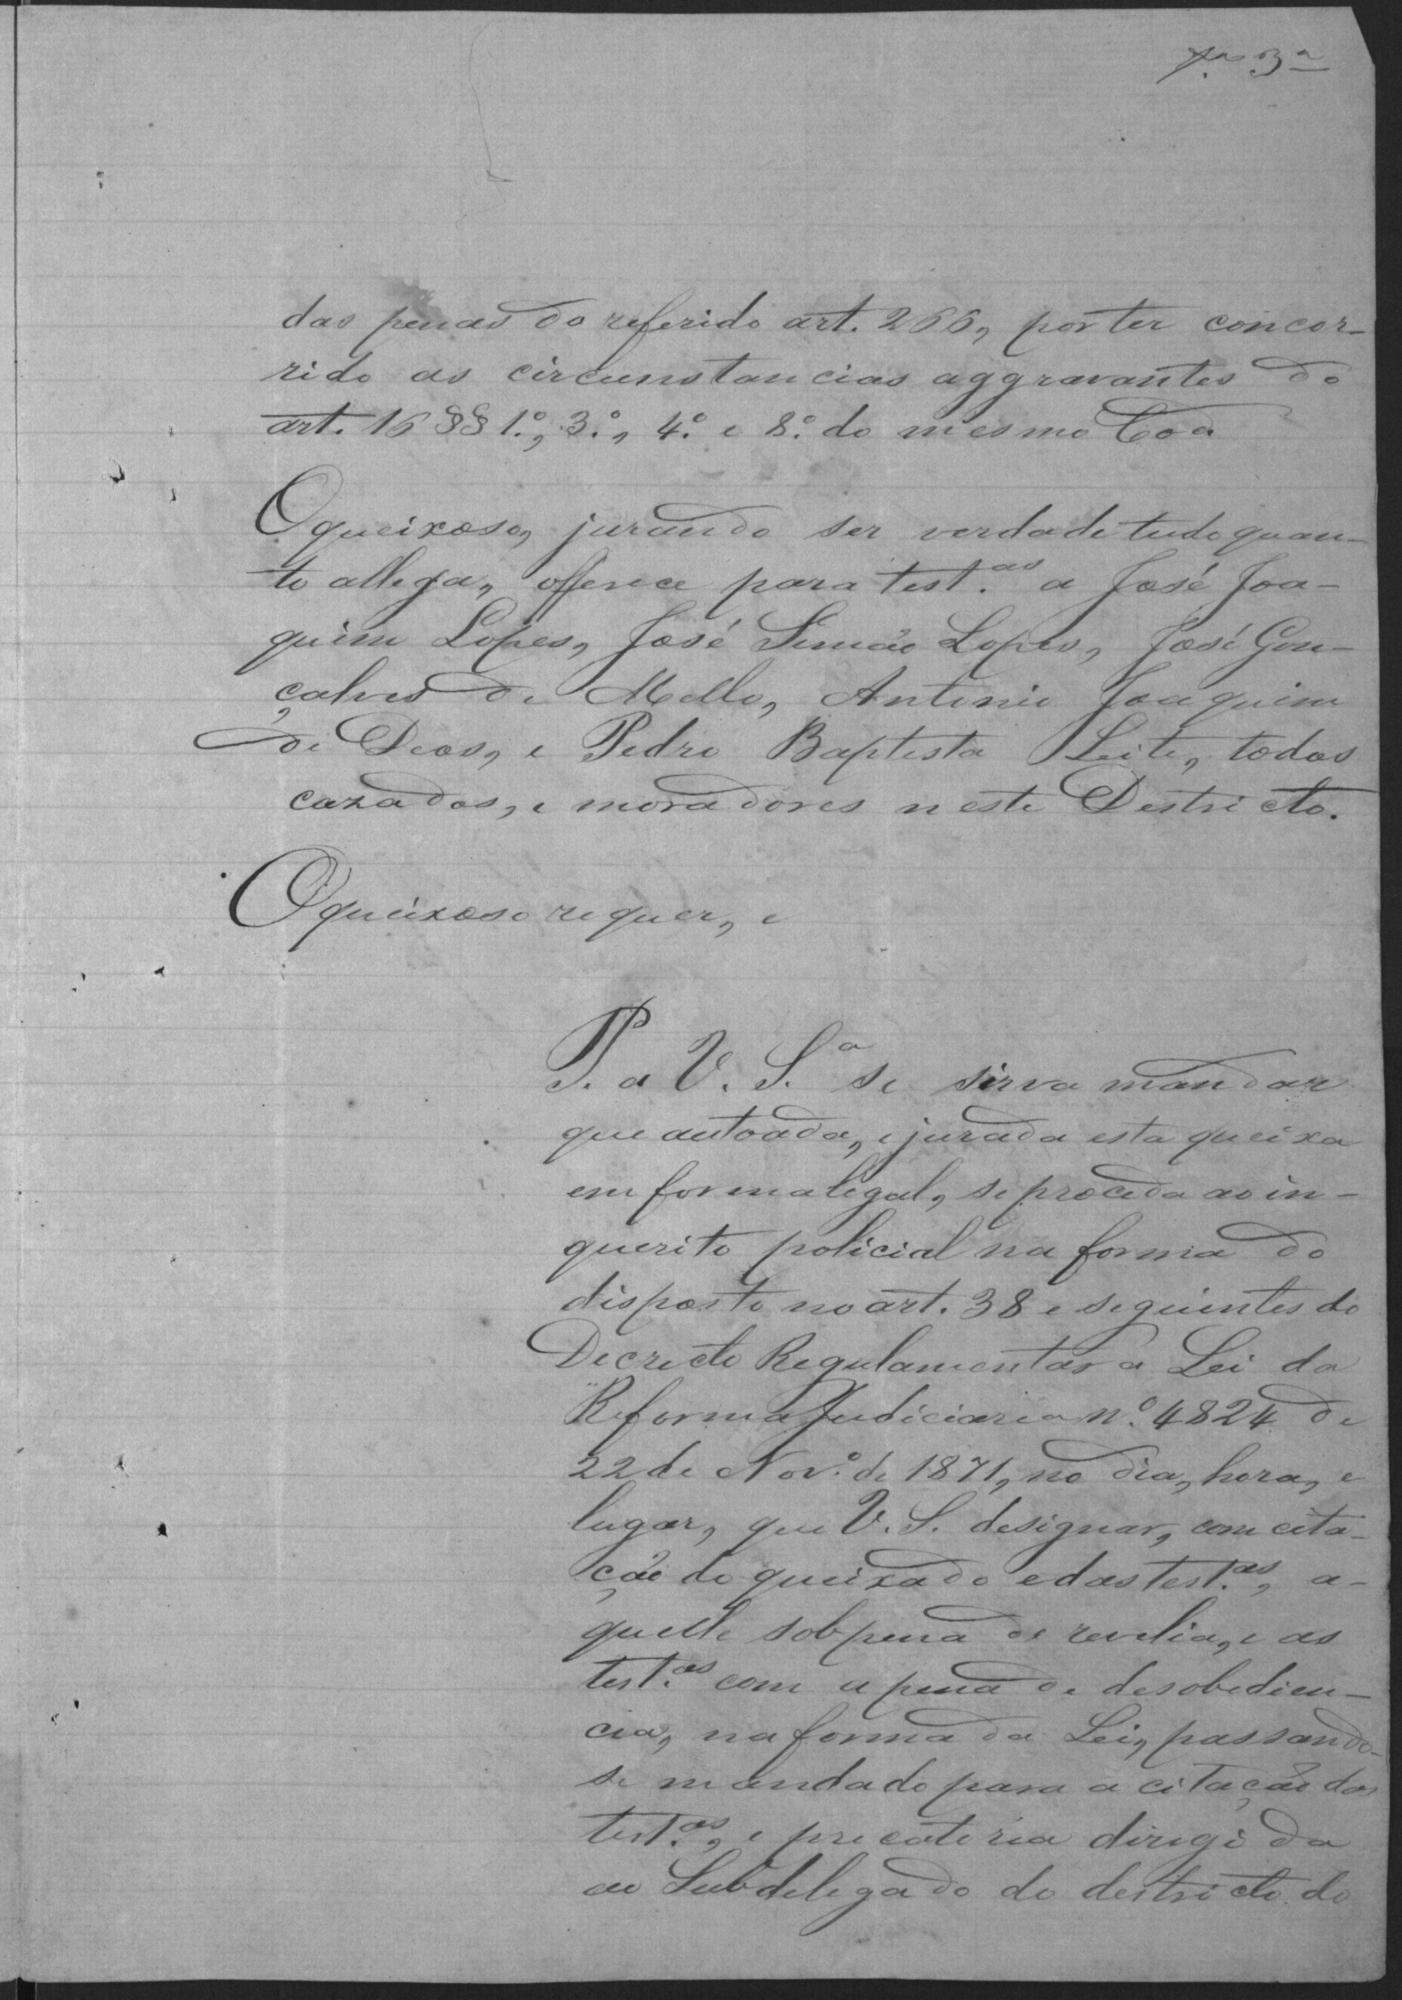 das penas do referido art. 266, por ter concor-
rido as circunstancias aggravantes do
art. 16 §§ 1.º, 3.º, 4.º e 8.º do mesmo Cod
O queixoso, jurando ser verdade tudo quan-
to allega, offerece para test.as a José Joa-
quim Lopes, José Simão Lopes, José Gon-
çalves de Mello, Antonio Joaquim
de Deos, e Pedro Baptista Leite, todos
cazados, e moradores neste Destricto.
O queixoso requer, e
P. a V. S.ª se sirva mandar
que autoada, e jurada esta queixa
em forma legal, se proceda ao in-
querito policial na forma do
disposto no art. 38 e seguintes do
Decrecto Regulamentar a Lei da
Reforma Judiciaria n.º 4824 de
22 de Nov.º de 1871, no dia, hora, e
lugar, que V. S. designar, com cita-
ção do queixado e das test.as, a-
quelle sob pena de revelia, e as
test.as com a pena de desobedien-
cia, na forma da Lei, passando-
se mandado para a citação das
test.as, e precatoria dirigida
ao Subdelegado do destricto do